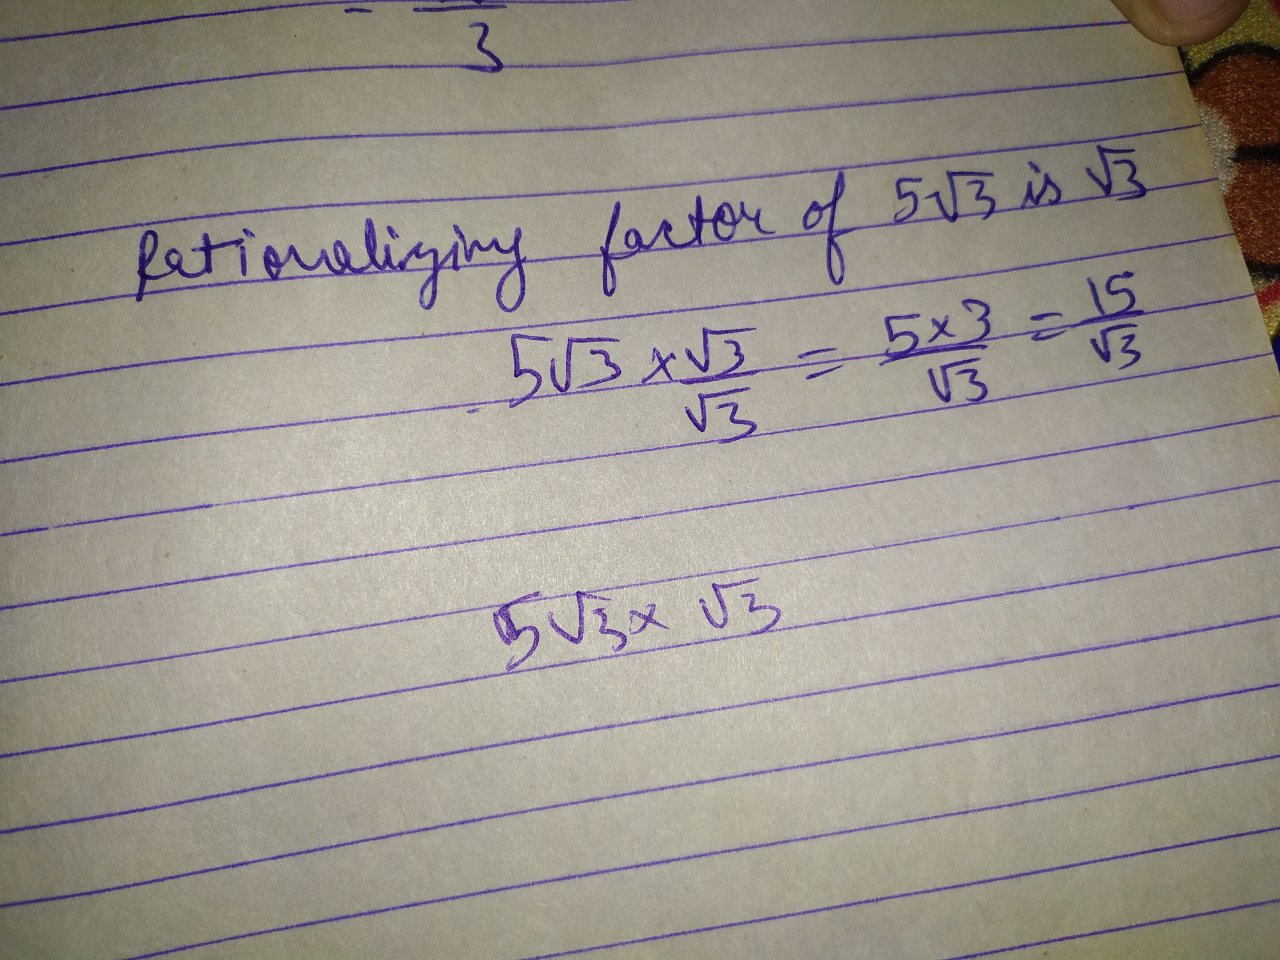 - —
3
Rationalizing factor of 5√3 is √3
5√3 × √3/√3 = 5×3/√3 = 15/√3
5√3 × √3